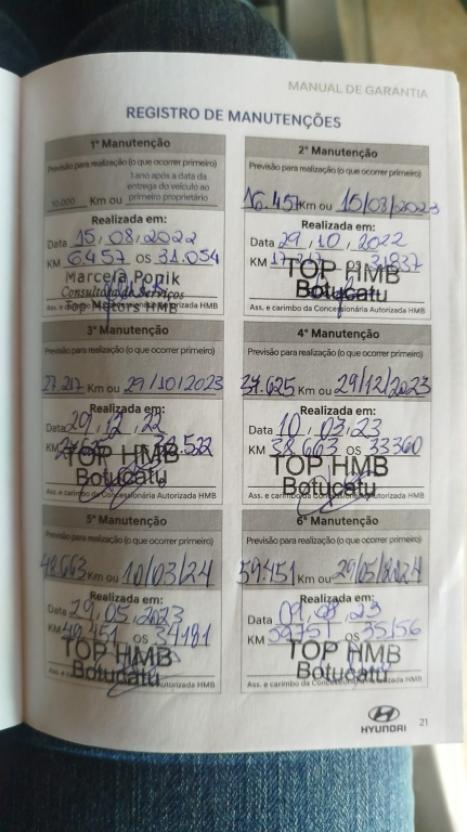 MANUAL DE GARANTIA
REGISTRO DE MANUTENÇÕES
1ª Manutenção
Previsão para realização (o que ocorrer primeiro)
10.000 Km ou 1 ano após a data da entrega do veículo ao primeiro proprietário
Realizada em:
Data 15, 08, 2022
KM 6457 os 31.054
Marcela Ponik
Consultora de Serviços
Ass. e carimbo da Concessionária Autorizada HMB
Top Motors HMB
2ª Manutenção
Previsão para realização (o que ocorrer primeiro)
16.457 Km ou 15/08/2023
Realizada em:
Data 29, 10, 2022
KM 17.217 os 31837
TOP HMB
Botucatu
Ass. e carimbo da Concessionária Autorizada HMB
3ª Manutenção
Previsão para realização (o que ocorrer primeiro)
27.217 Km ou 29/10/2023
Realizada em:
Data 29, 12, 22
KM 27625 os 32.522
TOP HMB
Botucatu
Ass. e carimbo da Concessionária Autorizada HMB
4ª Manutenção
Previsão para realização (o que ocorrer primeiro)
37.625 Km ou 29/12/2023
Realizada em:
Data 10, 03, 23
KM 38.663 os 33360
TOP HMB
Botucatu
Ass. e carimbo da Concessionária Autorizada HMB
5ª Manutenção
Previsão para realização (o que ocorrer primeiro)
48.663 Km ou 10/03/24
Realizada em:
Data 29, 05, 2023
KM 49.451 os 34181
TOP HMB
Botucatu
Ass. e carimbo da Concessionária Autorizada HMB
6ª Manutenção
Previsão para realização (o que ocorrer primeiro)
59.451 Km ou 29/05/2024
Realizada em:
Data 09, 08, 23
KM 59751 os 35156
TOP HMB
Botucatu
Ass. e carimbo da Concessionária Autorizada HMB
HYUNDAI
21